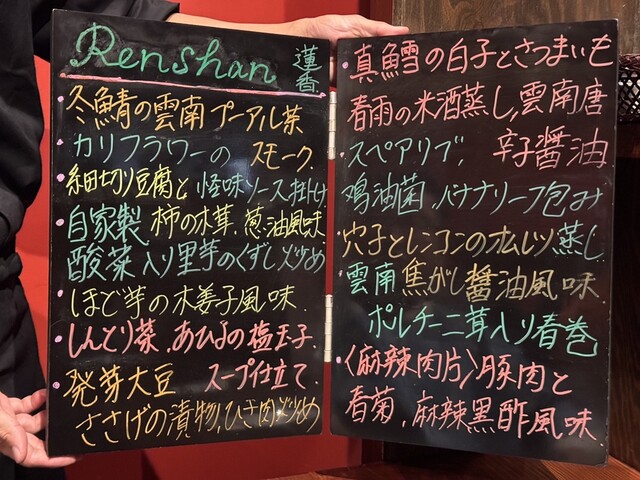 Renshan 蓮香
冬鯖の雲南プーアル茶
カリフラワーの スモーク.
細切り豆腐と 怪味ソース掛け
自家製 柿の木茸.葱油風味
酸菜入り里芋のくずし炒め
ほど芋の木姜子風味
しんとり菜.あひるの塩玉子.
発芽大豆 スープ仕立て.
ささげの漬物,ひき肉炒め
真鱈の白子とさつまいも
春雨の米酒蒸し,雲南唐
スペアリブ, 辛子醤油
鸡油菌.バナナリーフ包み
穴子とレンコンのオムレツ蒸し
雲南焦がし醤油風味.
ポルチーニ茸入り春巻
〈麻辣肉片〉豚肉と
春菊.麻辣黒酢風味.